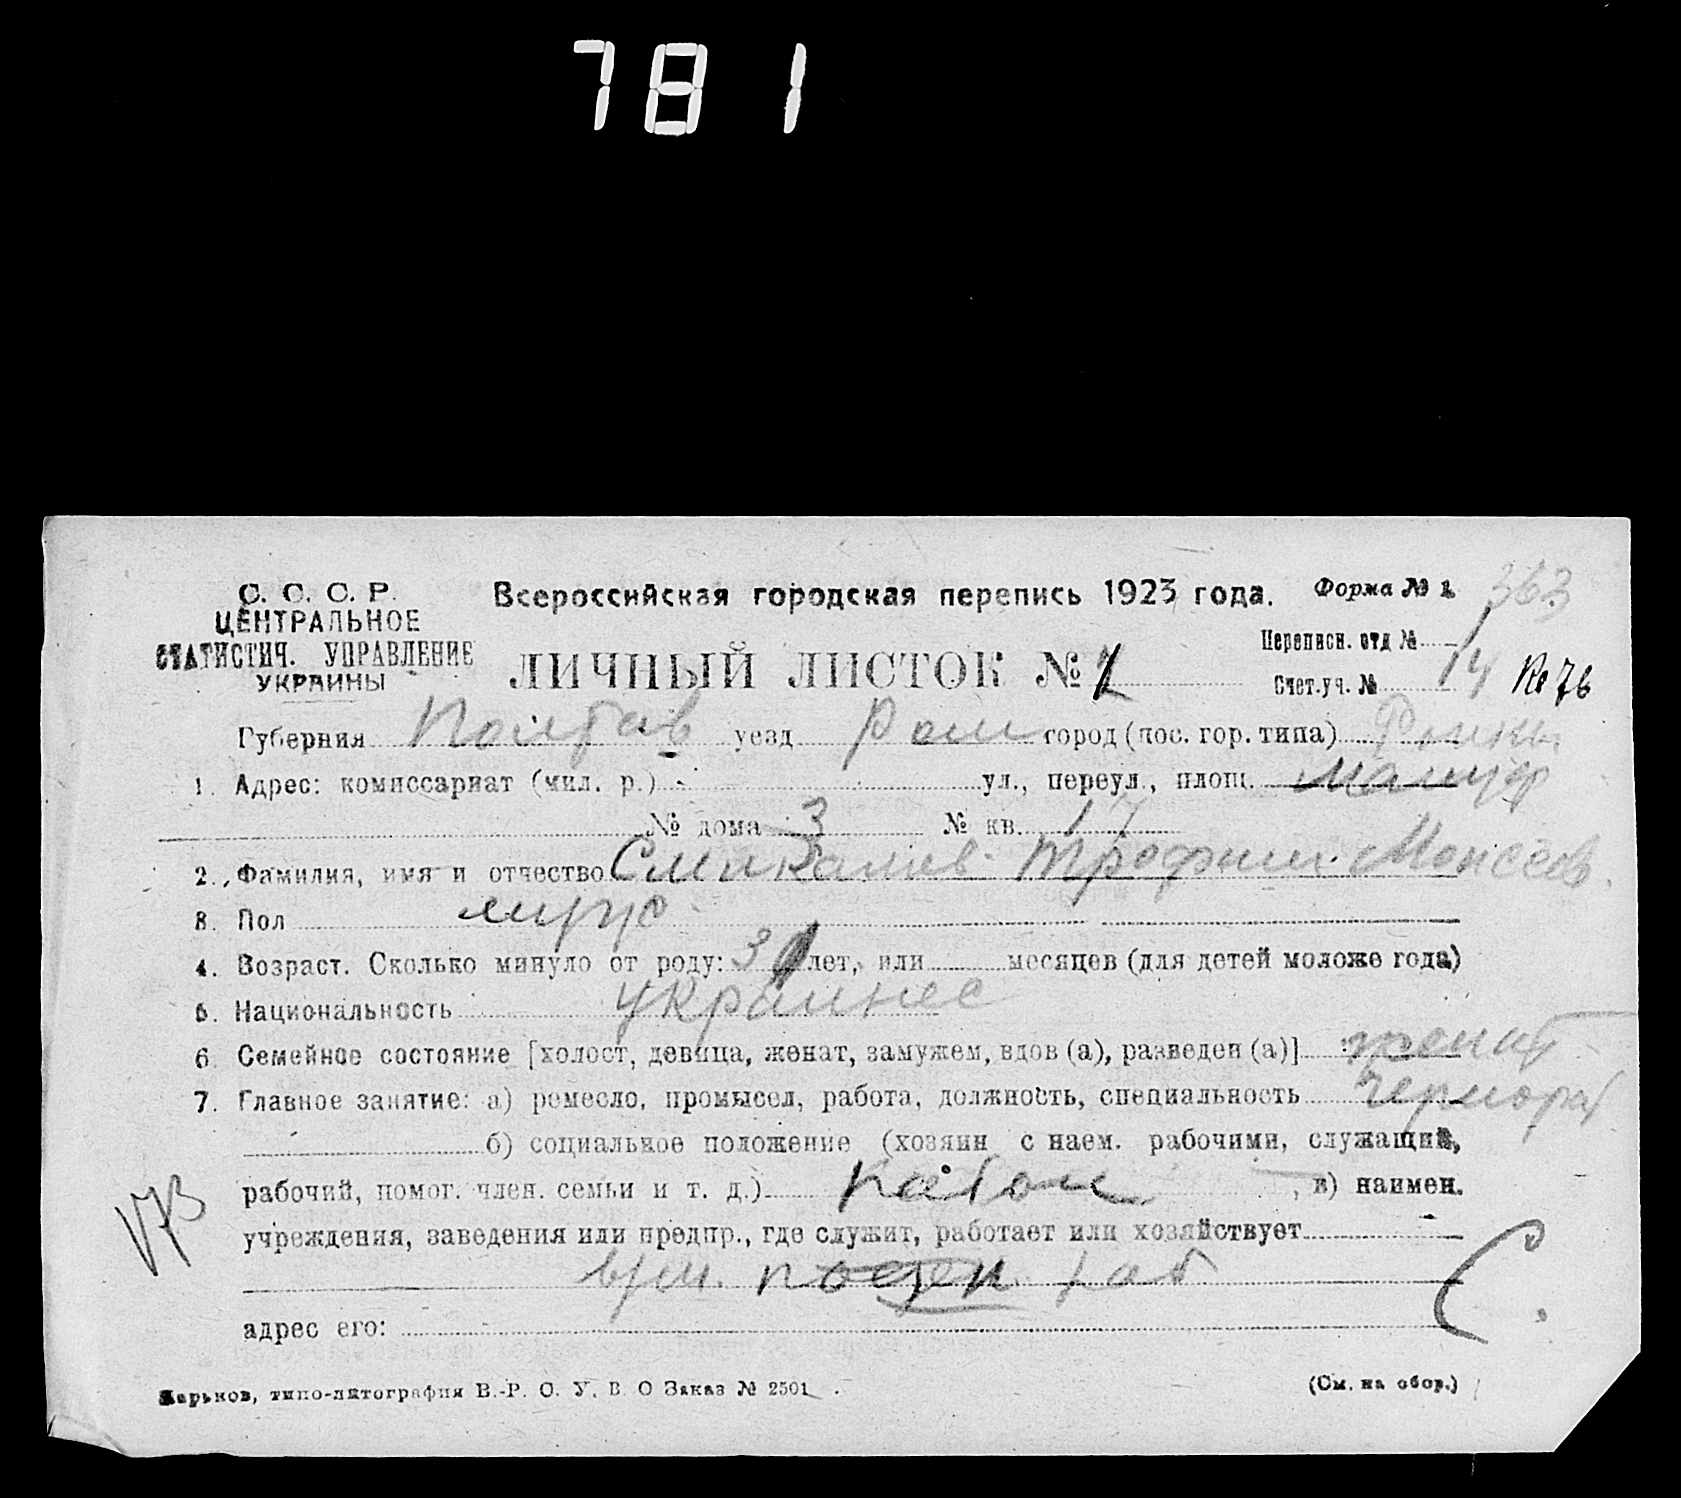 781
С. С. С. Р.
ЦЕНТРАЛЬНОЕ
СТАТИСТИЧ. УПРАВЛЕНИЕ
УКРАИНЫ
Всероссийская городская перепись 1923 года.
Форма № 1. 363
ЛИЧНЫЙ ЛИСТОК №
Переписн. отд № 1
Счет. уч. № 14 76
Губерния Полтав уезд Ром город (пос. гор. типа) Ромны
1. Адрес: комиссариат (мил. р.) ул., переул., площ.
№ дома 3 № кв. 17
2. Фамилия, имя и отчество Трофим Моисеев.
3. Пол муж
4. Возраст. Сколько минуло от роду: лет, или месяцев (для детей моложе года)
5. Национальность украинец
6. Семейное состояние [холост, девица, женат, замужем, вдов (а), разведен (а)] женат
7. Главное занятие: а) ремесло, промысел, работа, должность, специальность чернораб
б) социальное положение (хозяин с наем. рабочими, служащий,
рабочий, помог. член. семьи и т. д.) , в) наимен.
учреждения, заведения или предпр., где служит, работает или хозяйствует
поден раб
адрес его:
Харьков, типо-литография В.-Р. С. У. В. О Заказ № 2501
(См. на обор.)